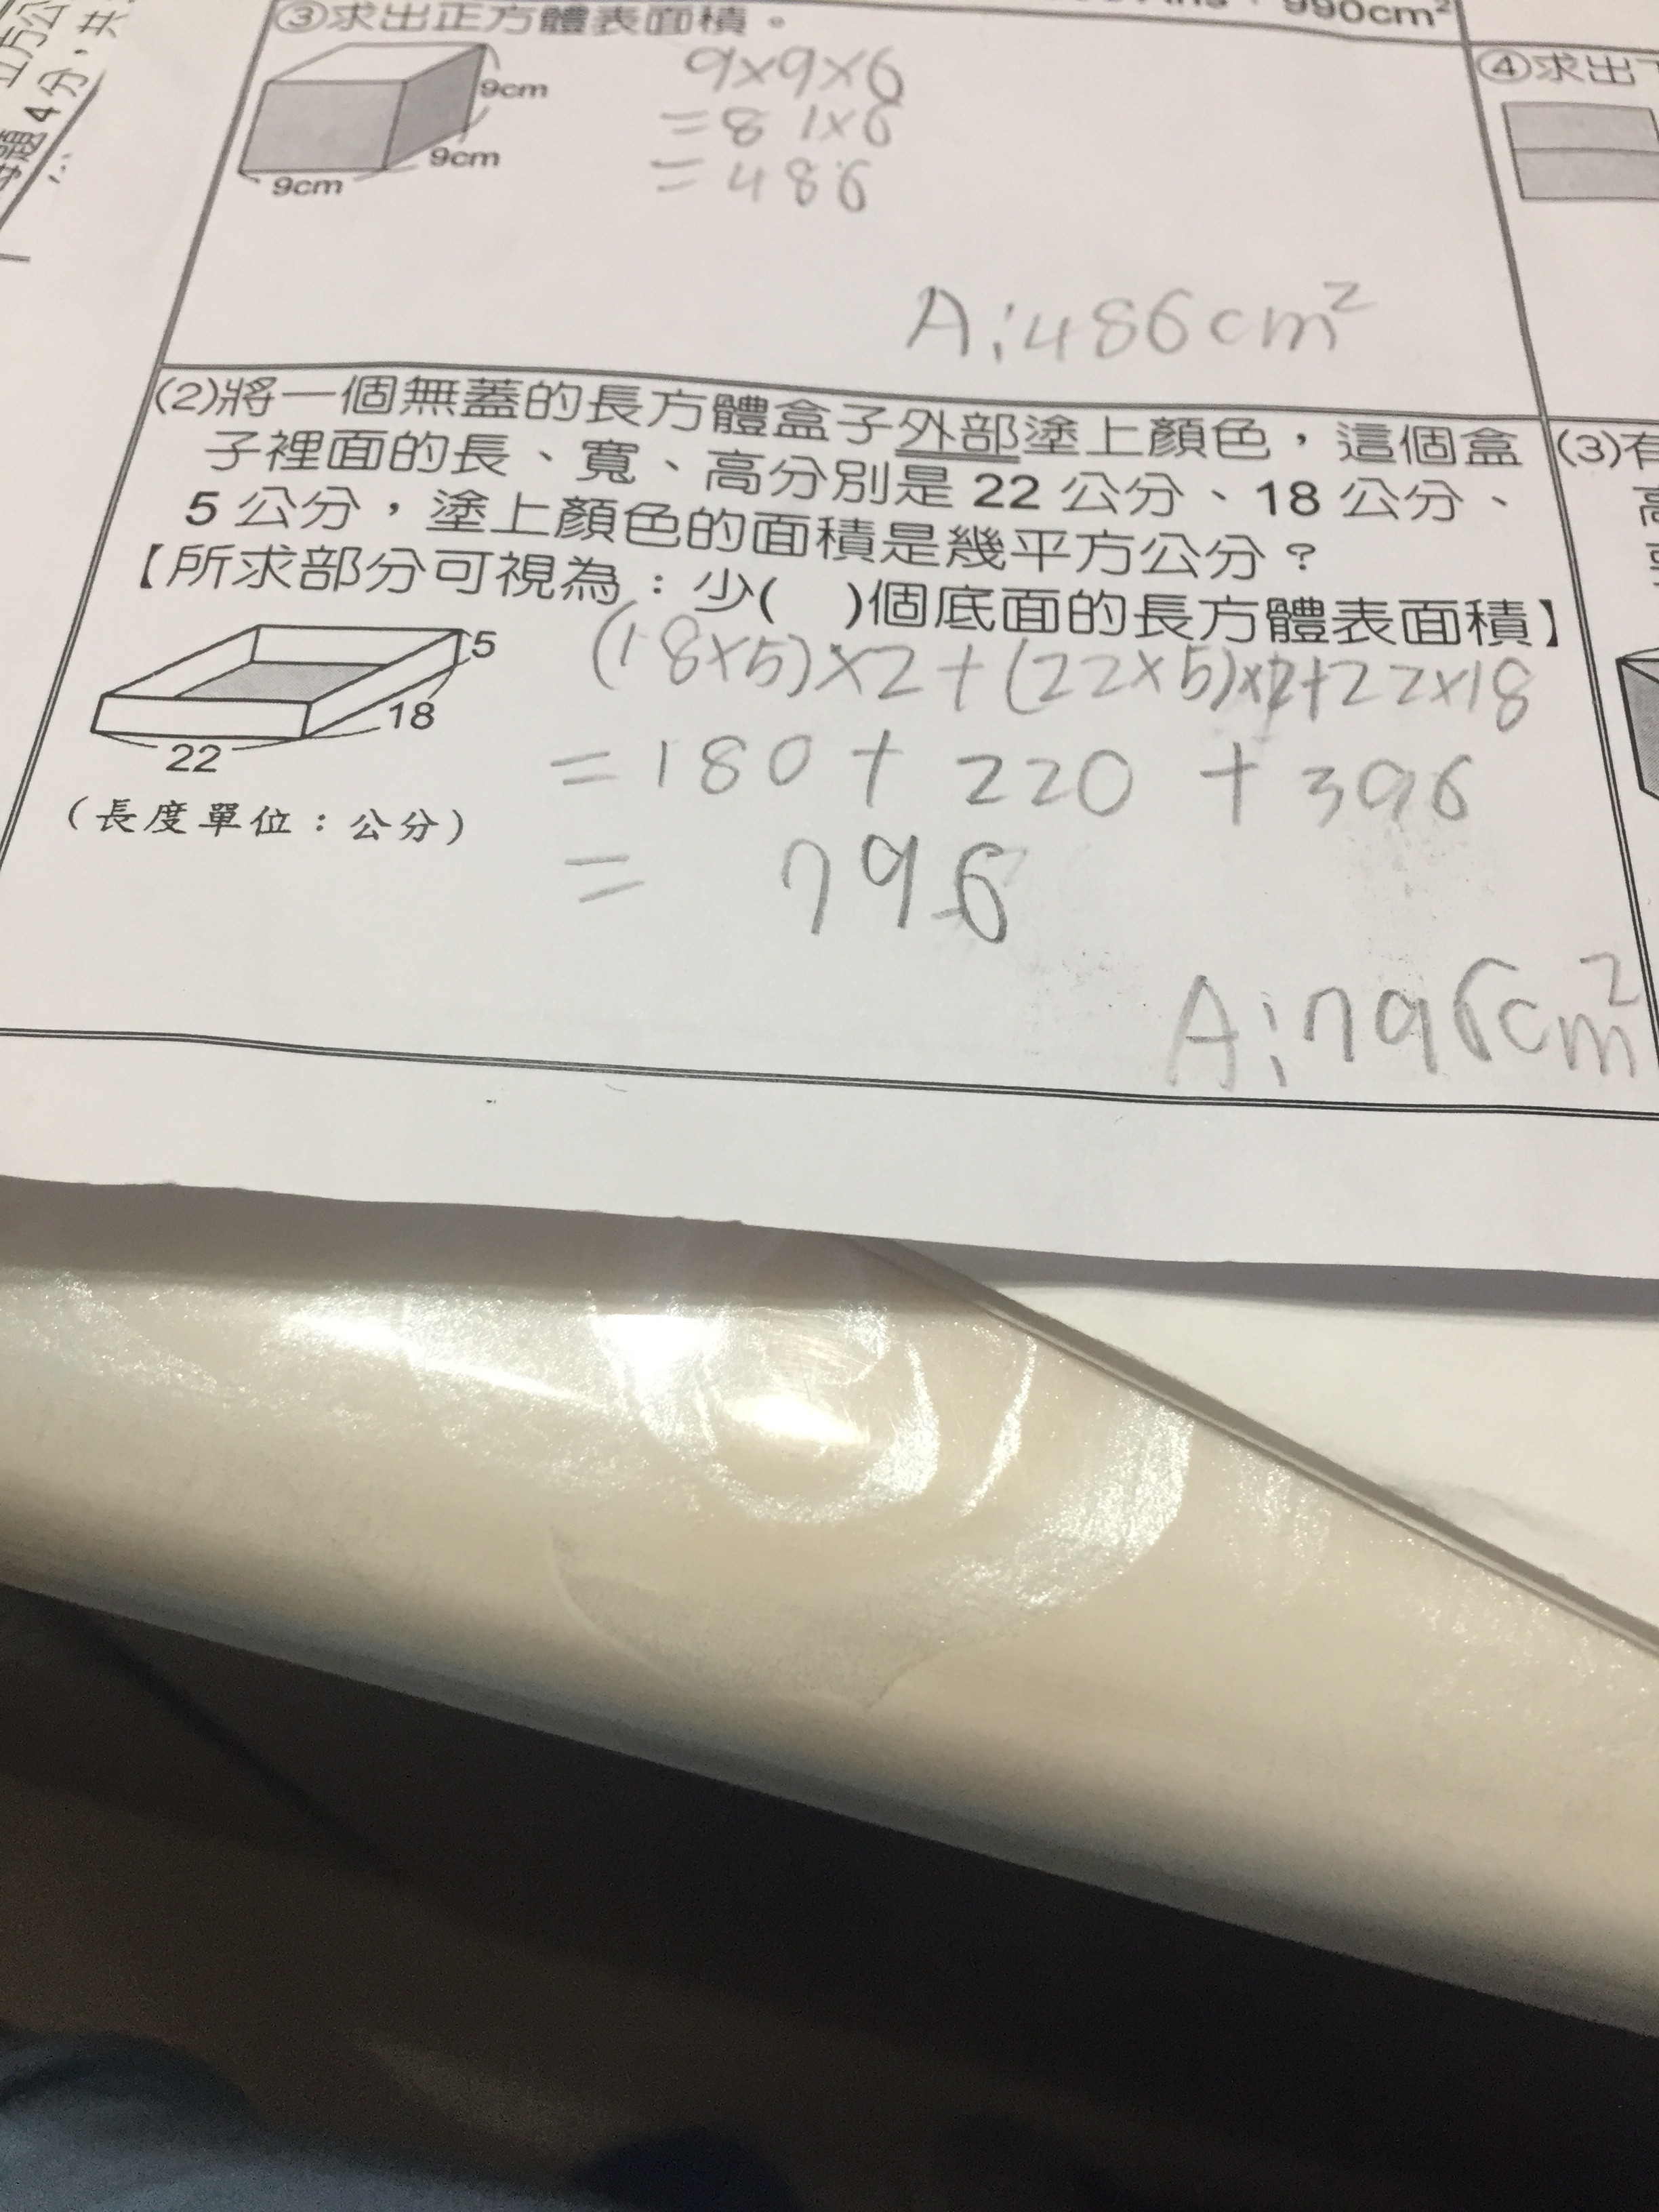 990cm²
③求出正方體表面積。
9cm
9cm
9cm
9×9×6
=81×6
=486
A:486cm²
④求出
(2)將一個無蓋的長方體盒子外部塗上顏色，這個盒
子裡面的長、寬、高分別是 22 公分、18 公分、
5 公分，塗上顏色的面積是幾平方公分？
【所求部分可視為：少( )個底面的長方體表面積】
5
18
22
(長度單位：公分)
(18×5)×2+(22×5)×2+22×18
=180+220+396
= 796
A:796cm²
(3)有
高